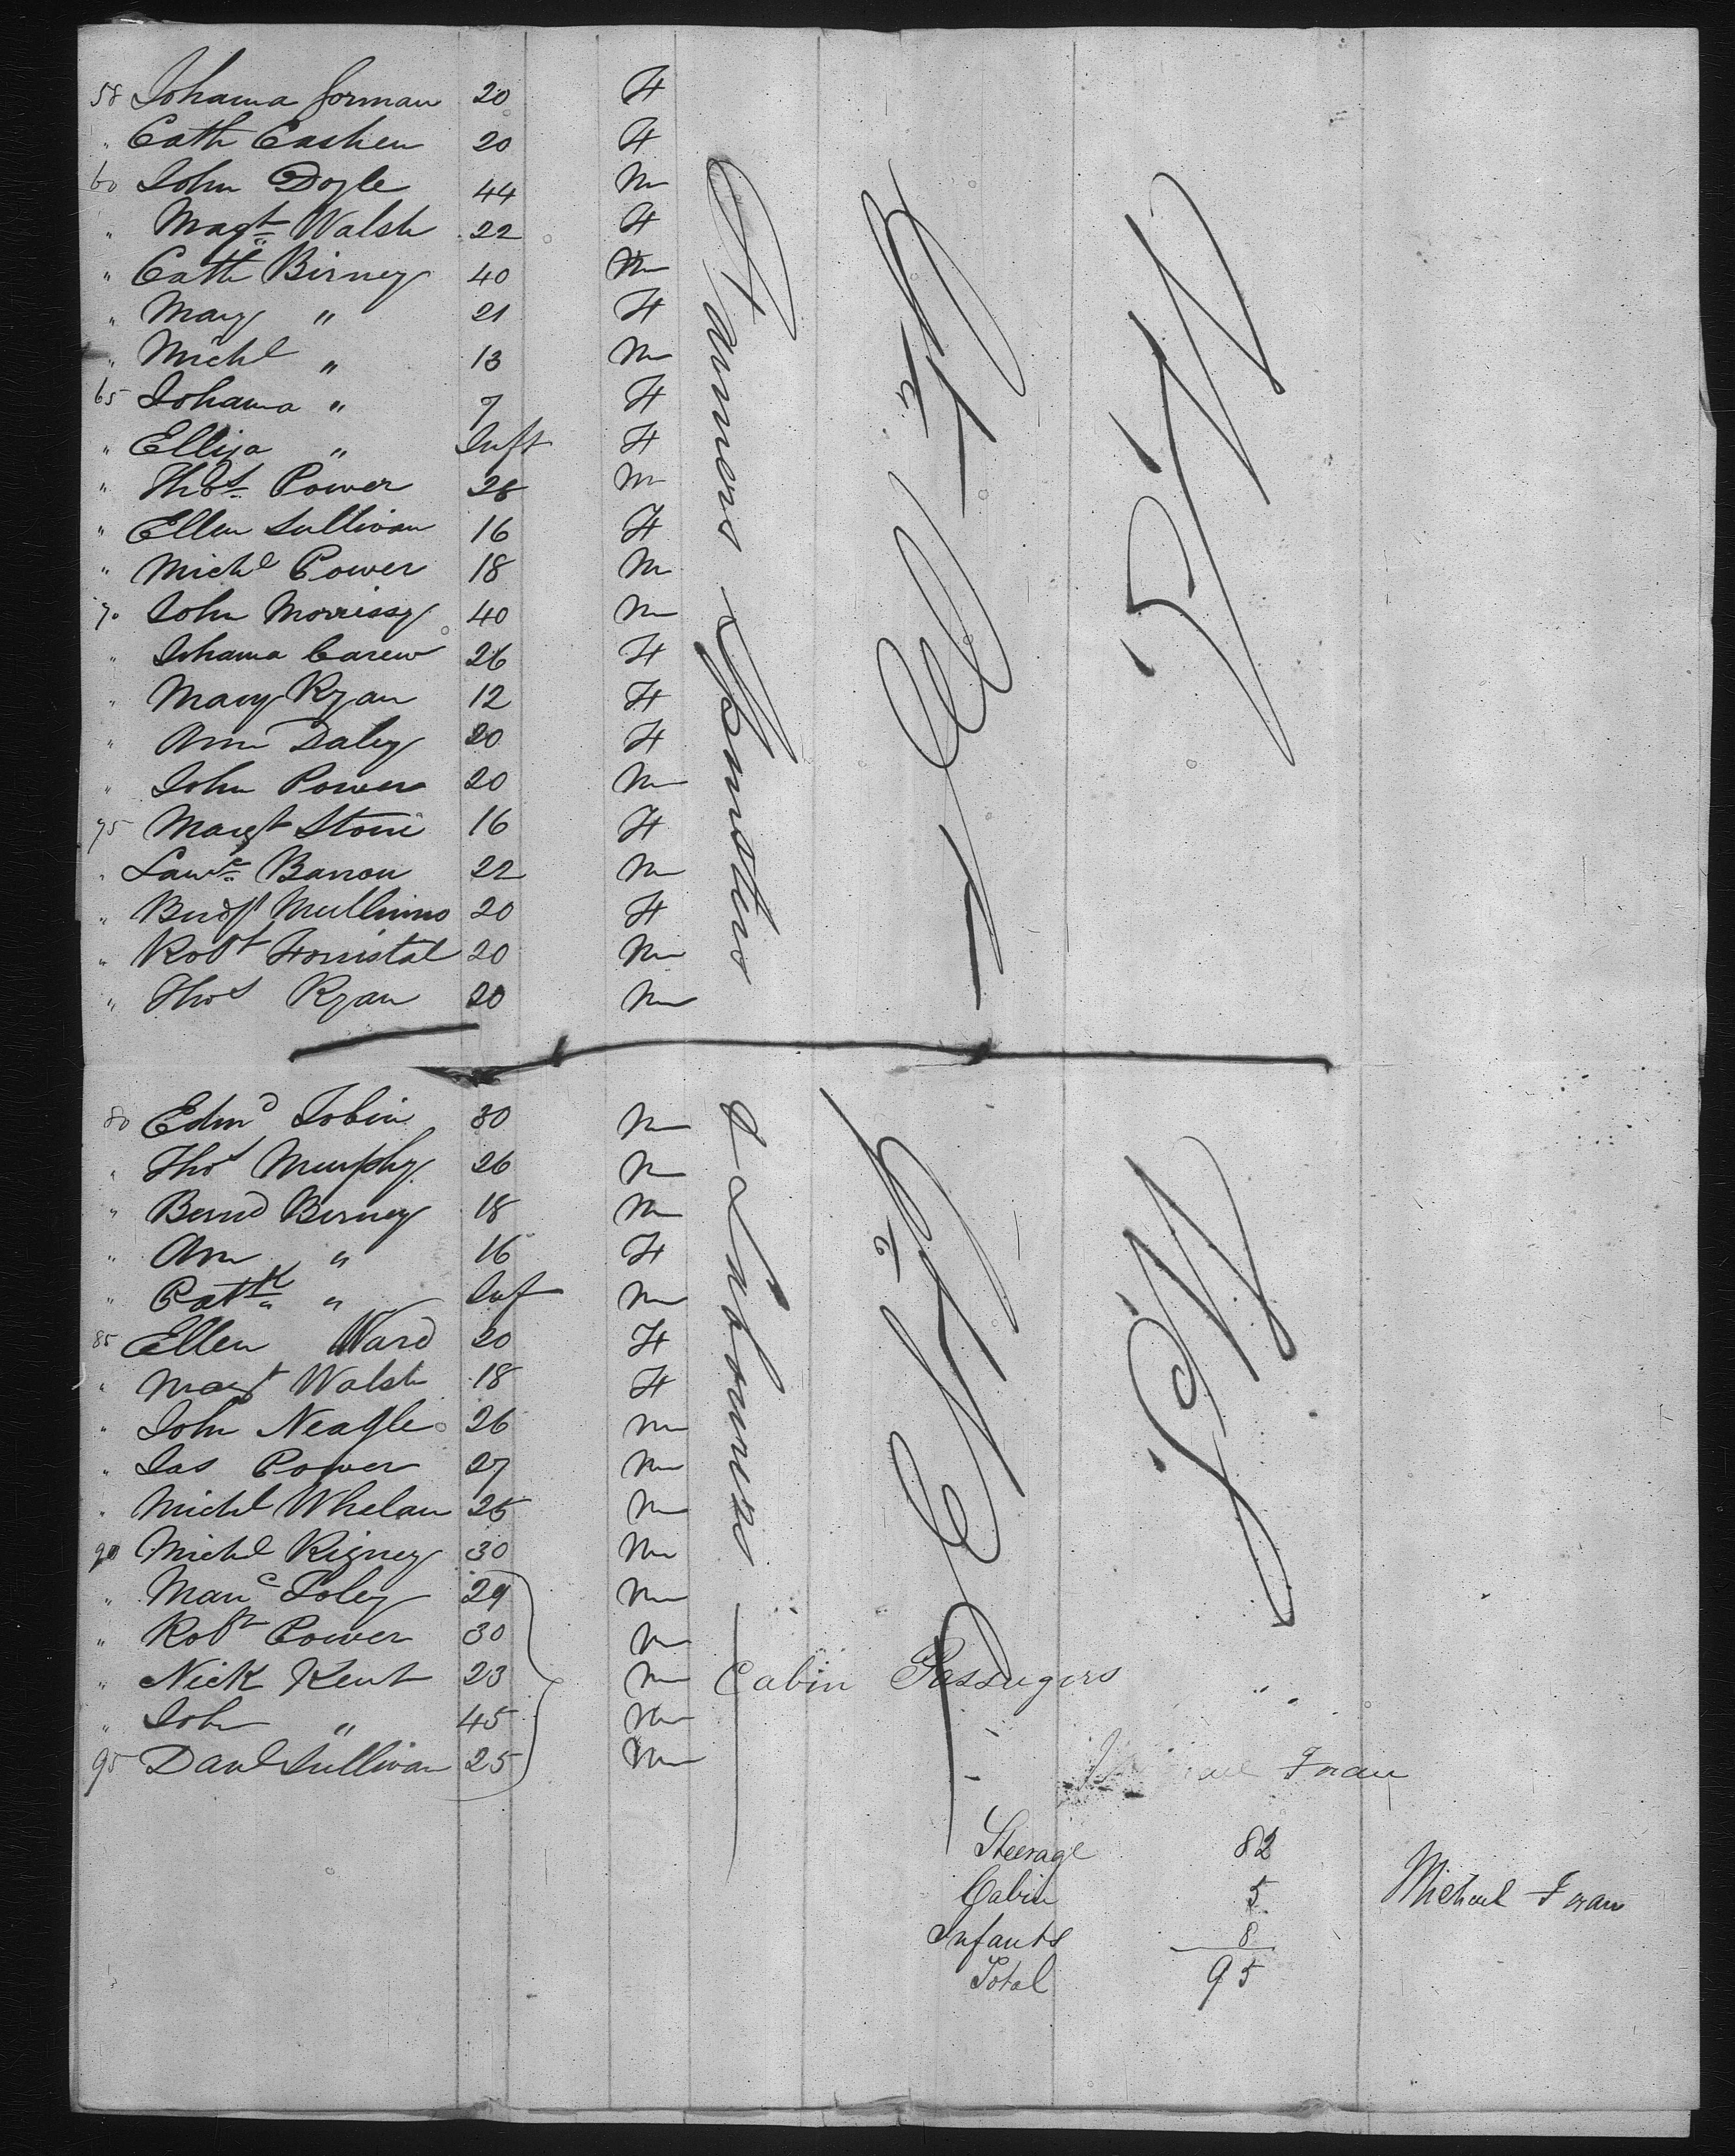 58 Johanna Gorman 20 F
" Cath Cashen 20 F
60 John Doyle 44 M
" Magt Walsh 22 F
" Cath Birney 40 M
" Mary " 21 F
" Michl " 13 M
65 Johanna " 7 F
" Elliza " Inft F
" Thos Power 28 M
" Ellen Sullivan 16 F
" Michl Power 18 M
70 John Morrissy 40 M
" Johanna Carew 26 F
" Mary Ryan 12 F
" Ann Daley 20 F
" John Power 20 M
75 Margt Stone 16 F
" Lawce Barron 22 M
" Bridgt Mullins 20 F
" Robt Forristal 20 M
" Thos Ryan 20 M
Farmers Spinsters
80 Edmd Tobin 30 M
" Thos Murphy 26 M
" Bernd Birney 18 M
" Ann " 16 F
" Pattk " Inf M
85 Ellen Ward 20 F
" Margt Walsh 18 F
" John Neagle 26 M
" Jas Power 27 M
" Michl Whelan 25 M
90 Michl Rigney 30 M
" Mauce Foley 29 M
" Robt Power 30 M
" Nick Kent 23 M Cabin Passengers
" John " 45 M
95 Danl Sullivan 25 M
& Labourers
Steerage 82
Cabin 5
Infants 8
Total 95
Michael Foran